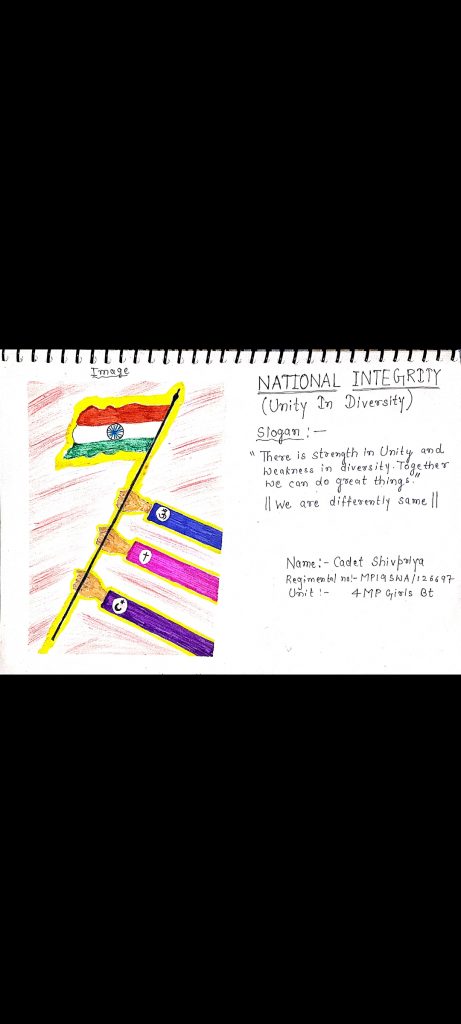 Image
NATIONAL INTEGRITY
(Unity In Diversity)
Slogan :-
" There is strength in Unity and
weakness in diversity. Together
we can do great things."
|| We are differently same ||
Name:- Cadet Shivpriya
Regimental no:- MP19SWA/126697
Unit :- 4 MP Girls Bt
ॐ